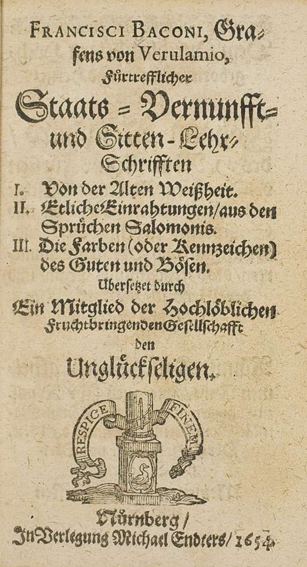 FRANCISCI BACONI, Gra-
fens von Verulamio,
Fürtrefflicher
Staats-Vernunfft-
und Sitten-Lehr-
Schrifften
I. Von der Alten Weißheit.
II. Etliche Einrahtungen/aus den
Sprüchen Salomonis.
III. Die Farben (oder Kennzeichen)
des Guten und Bösen.
Ubersetzet durch
Ein Mitglied der Hochlöblichen
Fruchtbringenden Gesellschafft
den
Unglückseligen.
RESPICE FINEM
Nürnberg/
In Verlegung Michael Endters/1654.